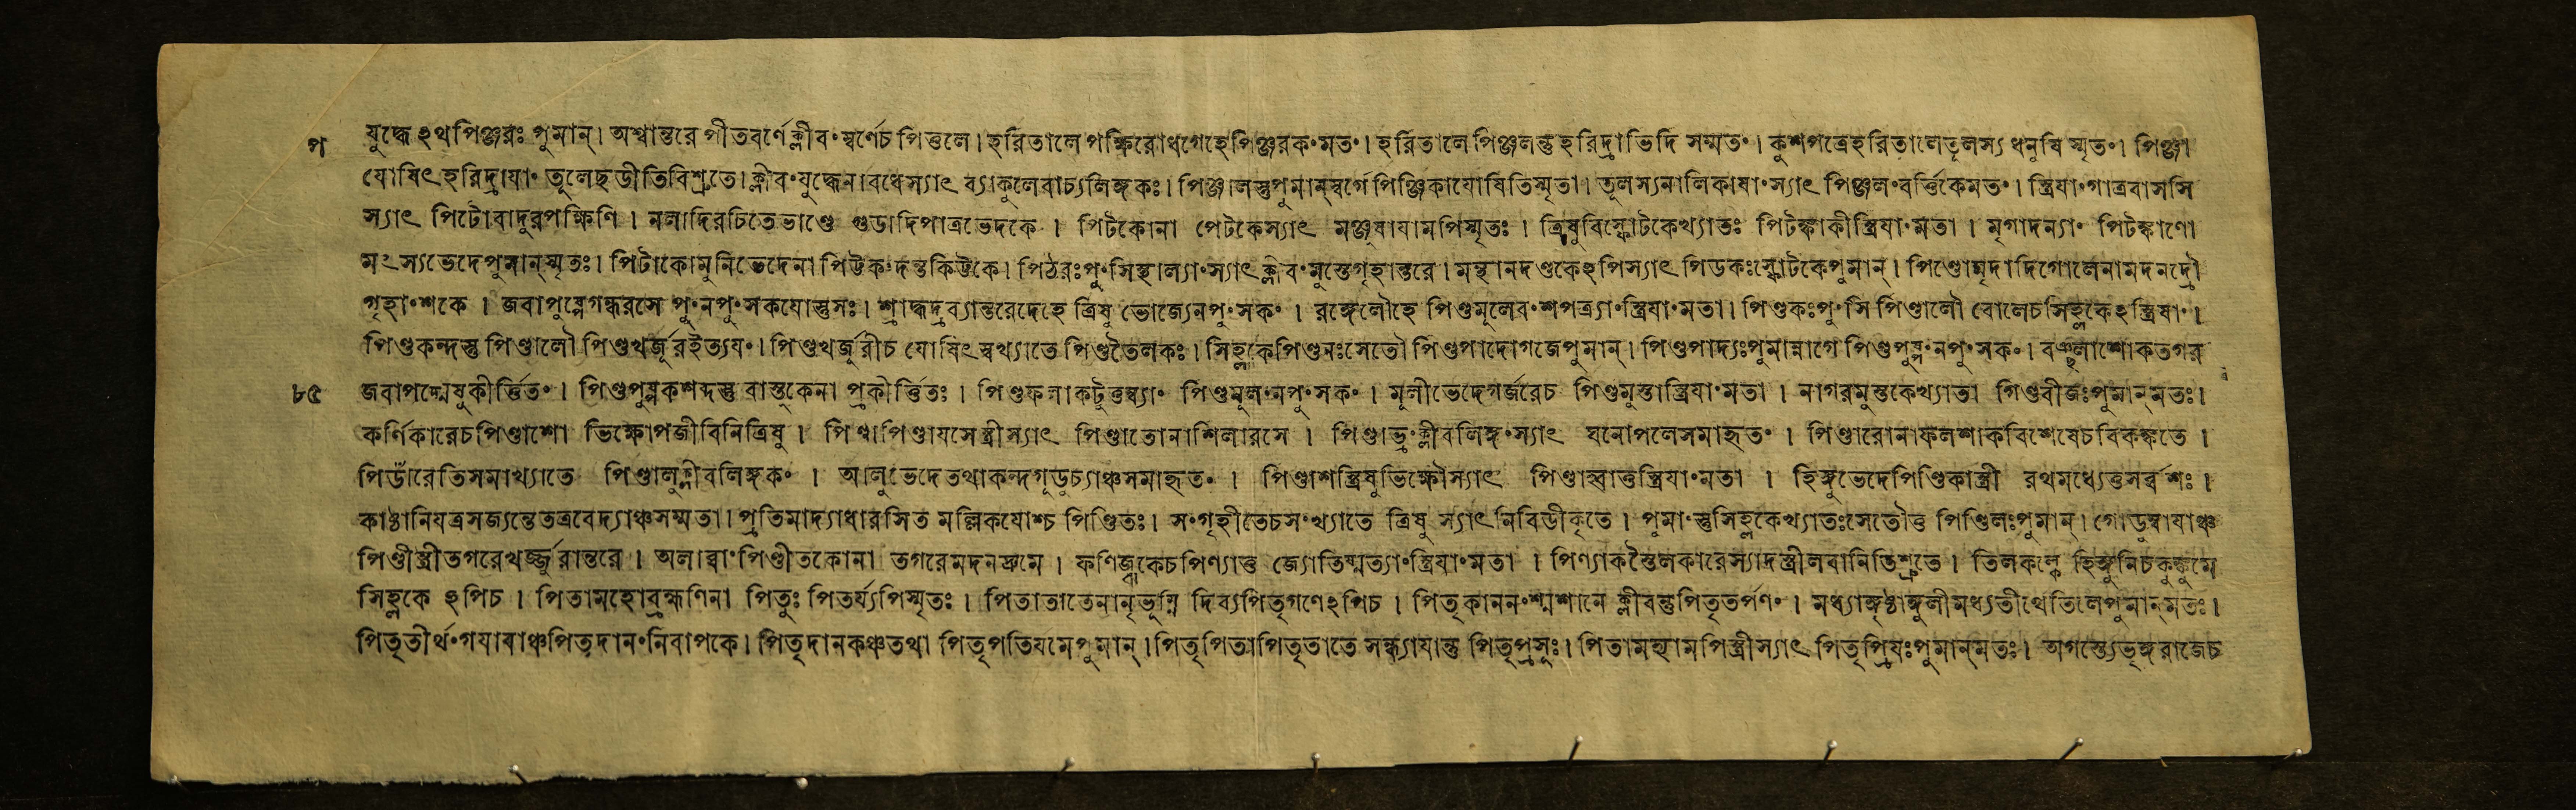 প যুদ্ধেঽথপিঞ্জরঃ পুমান্। অশ্বান্তরে পীতবর্ণেক্লীব॰স্বর্ণেচ পিত্তলে। হরিতালে পক্ষিরোধগেহেপিঞ্জরক॰মত॰। হরিতালে পিঞ্জলন্তুহরিদ্রাভিদি সম্মত॰। কুশপত্রেহরিতালেতূলস্য ধনুষি স্মৃত॰। পিঞ্জা
যোষিৎহরিদ্রাযা॰ তূলেছডীতিবিশ্রুতে। ক্লীব॰যুদ্ধেনাবধেস্যাৎ ব্যাকুলেবাচ্যলিঙ্গকঃ। পিঞ্জালস্তুপুমান্স্বর্গেপিঞ্জিকাযোষিতিস্মৃতা। তূলস্যনালিকাষা॰স্যাৎ পিঞ্জল॰বর্ত্তিকেমত॰। স্ত্রিযা॰গাত্রবাসসি
স্যাৎ পিটোবাদুরপক্ষিণি। নলাদিরচিতেভাণ্ডে গুডাদিপাত্রভেদকে। পিটকোনা পেটকেস্যাৎ মঞ্জূষাযামপিস্মৃতঃ। ত্রিষুবিস্ফোটকেখ্যাতঃ পিটঙ্কাকীস্ত্রিযা॰মতা। মৃগাদন্যা॰ পিটঙ্কাণো
মৎস্যভেদেপুমান্স্মৃতঃ। পিটাকোমুনিভেদেনা পিট্টক॰দন্তকিট্টকে। পিঠরঃপু॰সিস্থাল্যা॰স্যাৎক্লীব॰মুস্তেগৃহান্তরে। মন্থানদণ্ডকেঽপিস্যাৎ পিডকঃস্ফোটকেপুমান্। পিণ্ডোমৃদাদিগোলেনামদনদ্রৌ
গৃহা॰শকে। জবাপুষ্পেগন্ধরসে পু॰নপু॰সকযোস্তুসঃ। শ্রাদ্ধদ্রব্যান্তরেদেহে ত্রিষু ভোজ্যেনপু॰সক॰। রঙ্গেলৌহে পিণ্ডমূলেব॰শপত্র্যা॰স্ত্রিযা॰মতা। পিণ্ডকঃপু॰সি পিণ্ডালৌ বোলেচসিহ্লকেঽস্ত্রিষা॰।
পিণ্ডকন্দস্তু পিণ্ডালৌ পিণ্ডখর্জূরইত্যয॰। পিণ্ডখর্জূরীচ যোষিৎস্বখ্যাতে পিণ্ডতৈলকঃ। সিহ্লকেপিণ্ডনঃসেতৌ পিণ্ডপাদোগজেপুমান্। পিণ্ডপাদ্যঃপুমান্নাগে পিণ্ডপুষ্প॰নপু॰সক॰। বঞ্জুলাশোকতগর
৮৫ জবাপদ্মেষুকীর্ত্তিত॰। পিণ্ডপুষ্পকশব্দস্তু বাস্তূকেনা প্রকীর্ত্তিতঃ। পিণ্ডফলাকটুতুম্ব্যা॰ পিণ্ডমূল॰নপু॰সক॰। মূলীভেদেগর্জরেচ পিণ্ডমুস্তাস্ত্রিযা॰মতা। নাগরমুস্তকেখ্যাতা পিণ্ডবীজঃপুমান্মতঃ।
কর্ণিকারেচপিণ্ডাশো ভিক্ষোপজীবিনিত্রিষু। পিণ্ডাপিণ্ডাযসেস্ত্রীস্যাৎ পিণ্ডাতোনাশিলারসে। পিণ্ডাভ্র॰ক্লীবলিঙ্গ॰স্যাৎ ঘনোপলেসমাহৃত॰। পিণ্ডারোনাফলশাকবিশেষেচবিকঙ্কতে।
পিডাঁরেতিসমাখ্যাতে পিণ্ডালুক্লীবলিঙ্গক॰। আলুভেদেতথাকন্দগূডূচ্যাঞ্চসমাহৃত॰। পিণ্ডাশস্ত্রিষুভিক্ষৌস্যাৎ পিণ্ডাহ্বাত্তুস্ত্রিযা॰মতা। হিঙ্গুভেদেপিণ্ডিকাস্ত্রী রথমধ্যেতুসর্ব্বশঃ।
কাষ্ঠানিযত্রসজ্যন্তেতত্রবেদ্যাঞ্চসম্মতা। প্রতিমাদ্যাধারসিত মল্লিকযোশ্চ পিণ্ডিতঃ। স॰গৃহীতেচস॰খ্যাতে ত্রিষু স্যাৎনিবিডীকৃতে। পুমা॰স্তুসিহ্লকেখ্যাতঃসেতৌতু পিণ্ডিলঃপুমান্। গোডুম্বাযাঞ্চ
পিণ্ডীস্ত্রীতগরেখর্জ্জূরান্তরে। অলাব্বা॰পিণ্ডীতকোনা তগরেমদনদ্রুমে। ফণিজ্ঝকেচপিণ্যাতু জ্যোতিষ্মত্যা॰স্ত্রিযা॰মতা। পিণ্যাকস্তৈলকারেস্যাদস্ত্রীলবানিতিশ্রুতে। তিলকল্কে হিঙ্গুনিচকুঙ্কুমে
সিহ্লকে ঽপিচ। পিতামহোব্রহ্মণিনা পিতুঃ পিতর্য্যপিস্মৃতঃ। পিতাতাতেনানৃভূম্নি দিব্যপিতৃগণেঽপিচ। পিতৃকানন॰শ্মশানে ক্লীবন্তুপিতৃতর্পণ॰। মধ্যাঙ্গুষ্ঠাঙ্গুলীমধ্যতীর্থেতিলেপুমান্মতঃ।
পিতৃতীর্থ॰গযাযাঞ্চপিতৃদান॰নিবাপকে। পিতৃদানকঞ্চতথা পিতৃপতিযমেপুমান্। পিতৃপিতাপিতৃতাতে সন্ধ্যাযান্তু পিতৃপ্রসূঃ। পিতামহ্যামপিস্ত্রীস্যাৎ পিতৃপ্রিযঃপুমান্মতঃ। অগস্ত্যেভৃঙ্গরাজেচ